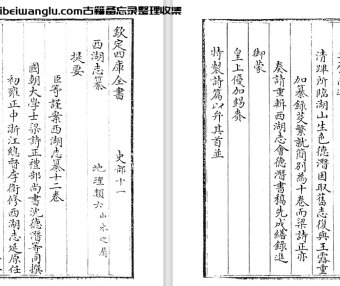 ibeiwanglu.com古籍备忘录整理收集
欽定四庫全書　史部十一
西湖志纂　地理類六山水之屬
提要
臣等謹案西湖志纂十二卷
國朝大學士梁詩正禮部尚書沈德潛等同撰
初雍正中浙江總督李衛修西湖志延原任
清蹕所臨湖山生色德潛因取舊志復與王露重
加纂錄芟繁就簡別為十卷而梁詩正亦
奏請重輯西湖志會德潛書稿先成繕錄進
御蒙
皇上優加錫賚
特製詩篇以弁其首並